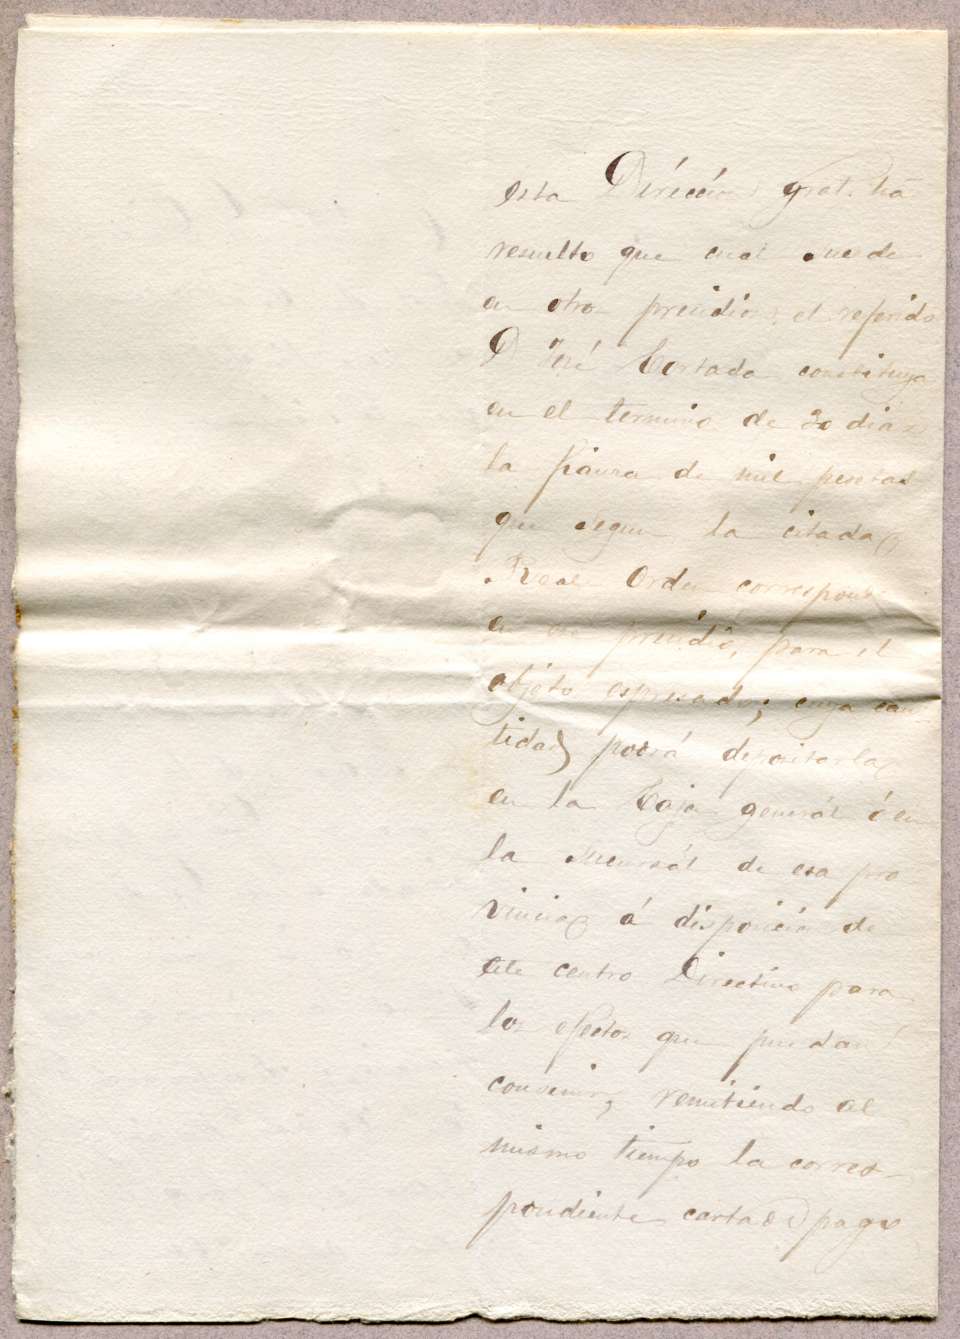 esta Dirección gral. ha
resuelto que cual sucede
en otros presidios, el referido
D. José Cortada constituya
en el termino de 20 dias
la fianza de mil pesetas
que segun la citada
Real Orden corresponde
en ese presidio, para el
objeto espresado; cuya can
tidad podrá depositarla
en la Caja general ó en
la sucursal de esa pro
vincia á disposición de
este centro Directivo para
los efectos que puedan
convenir, remitiendo al
mismo tiempo la corres-
pondiente carta de pago